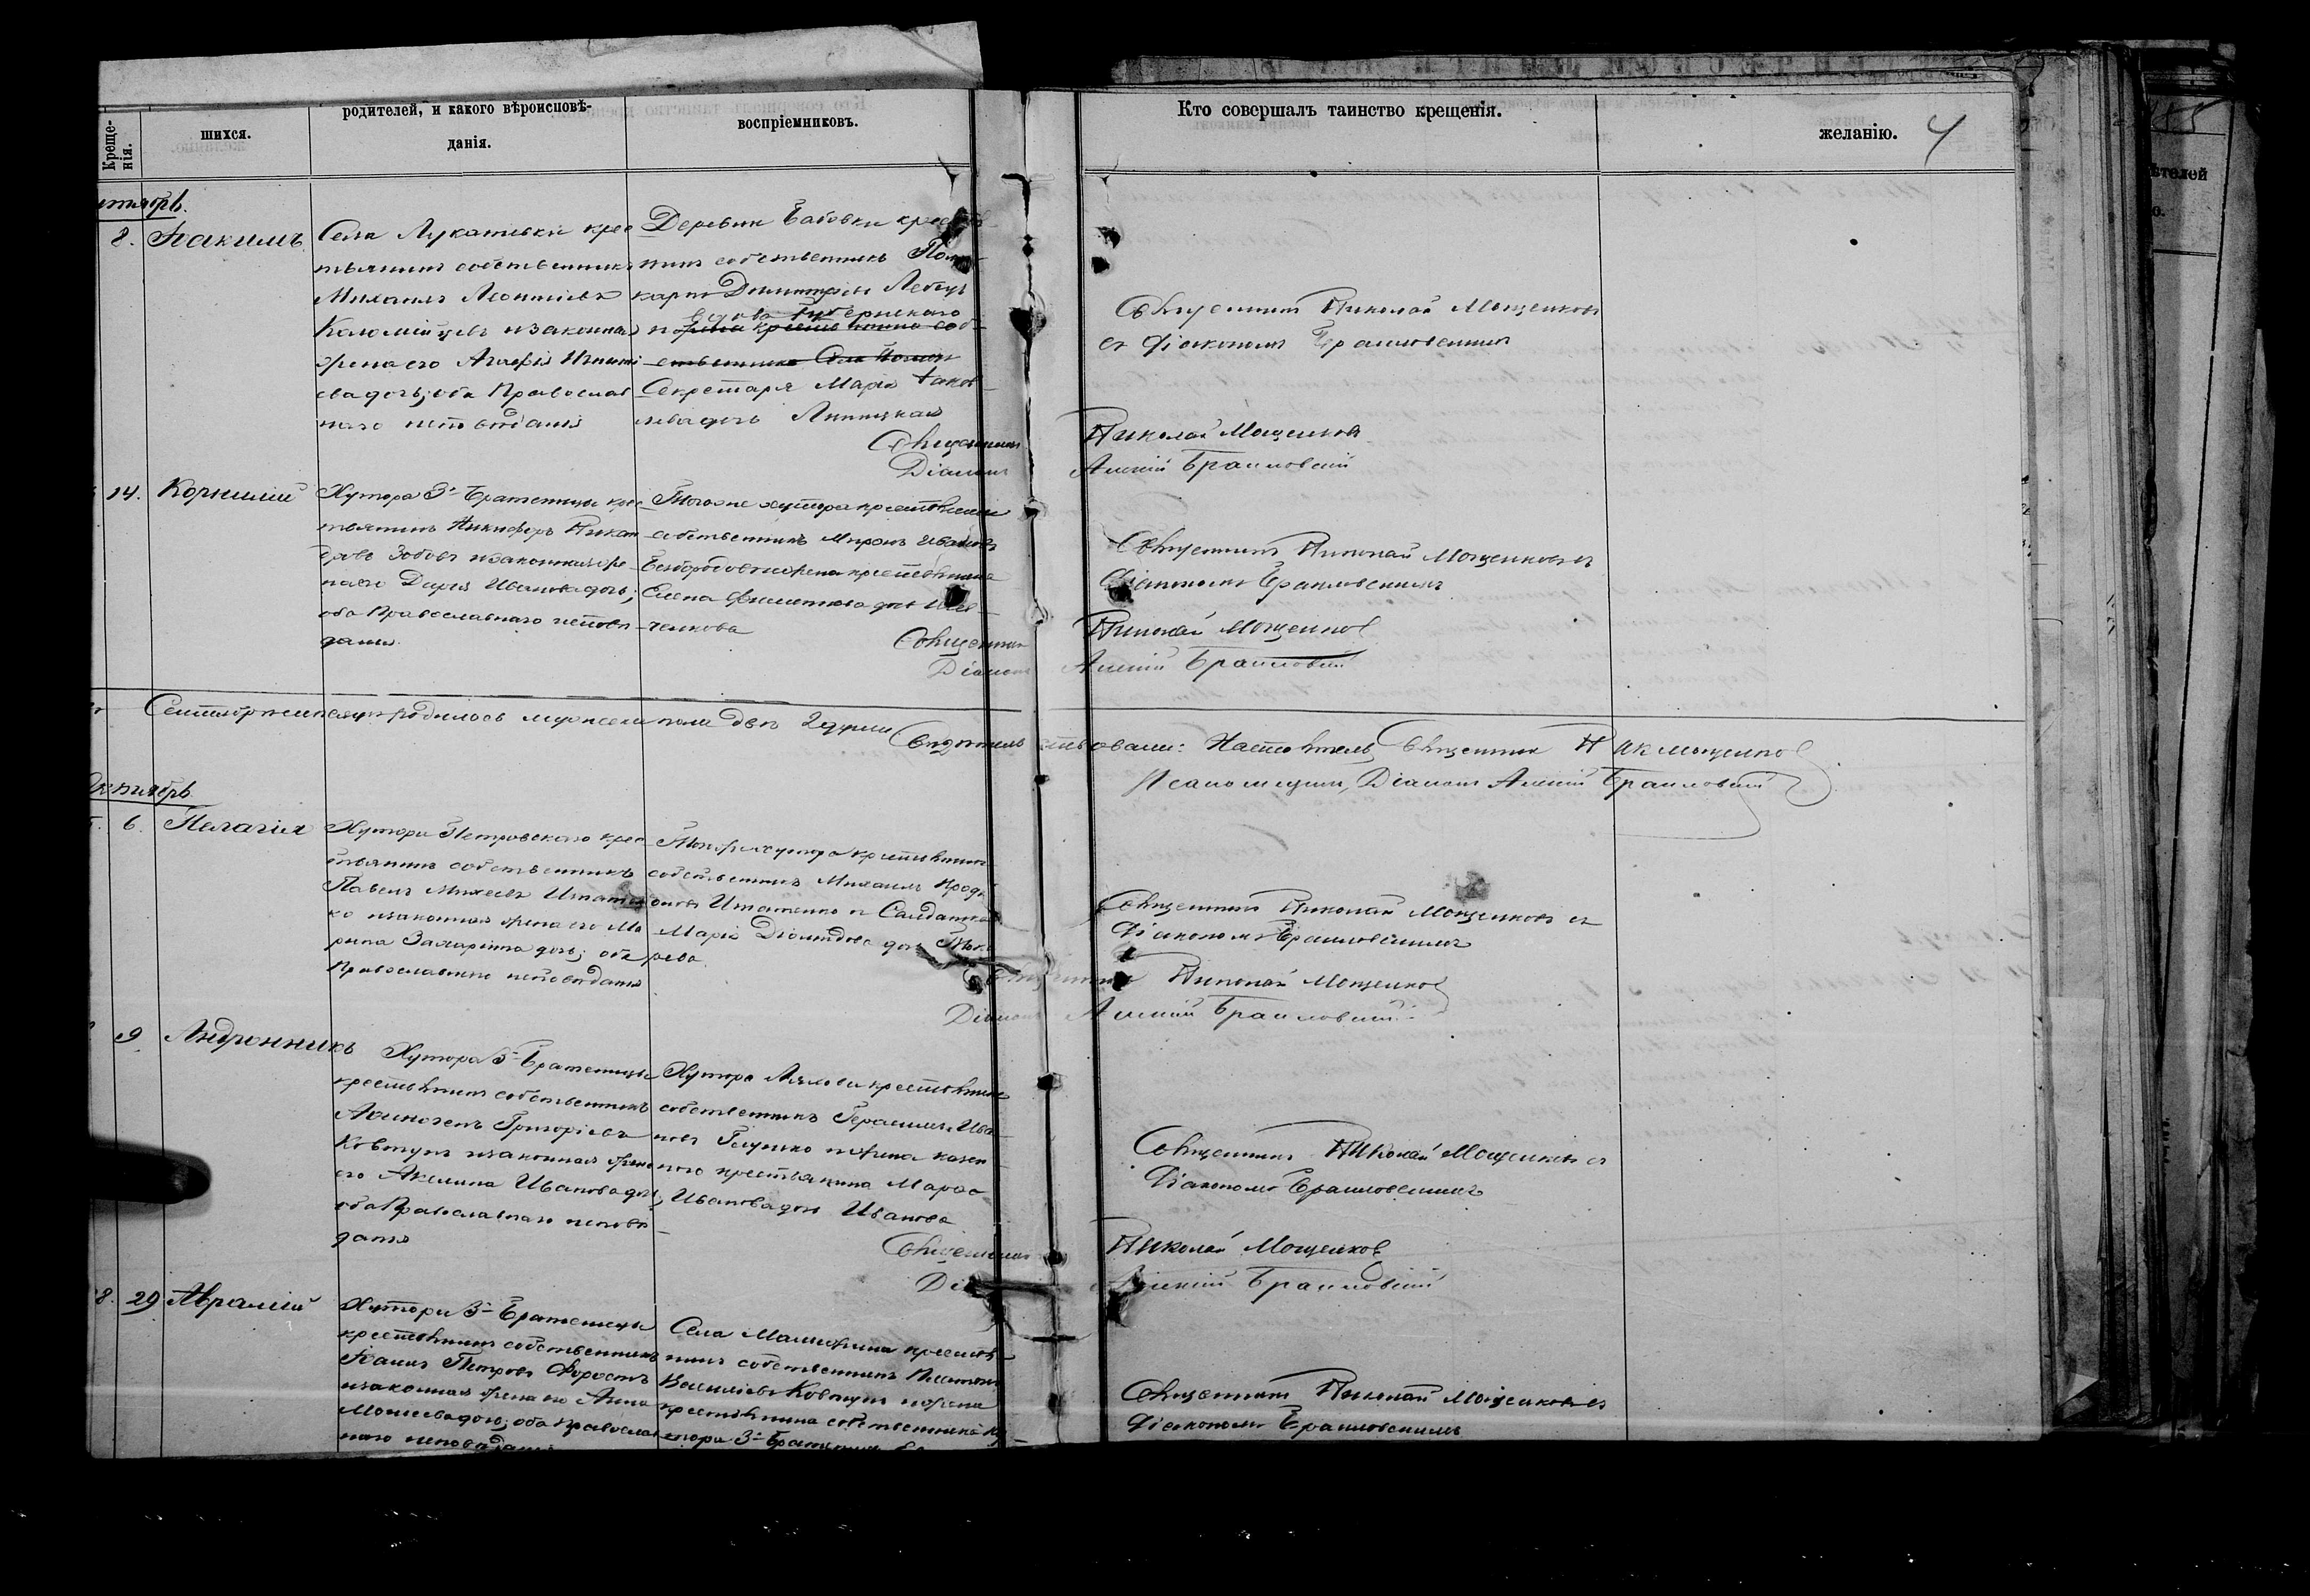 Креще-
нія.
шихся.
родителей, и какого вѣроисповѣ-
данія.
воспріемниковъ.
Кто совершалъ таинство крещенія.
желанію.
4
8. Іоакимъ
Села Лукашевки крес
тьянинъ собственникъ
Михаилъ Леонтіевъ
Коломійцевъ и законная
жена его Агафія
ева дочь; оба Православ
наго исповѣданія
Деревни Бабовки
нинъ собственникъ
карпъ Димитріевъ
вдова Губернскаго
Секретаря Марія Іаков
лева дочь Липицкая
Священникъ Николай Мощенковъ
съ Діакономъ Браиловскимъ
Священникъ Николай Мощенков
Діаконъ Алексій Браиловскій
14. Корнилій
Хутора 3й Братеницы крес
тьянинъ Никифоръ Никан
оровъ Зобовъ и законная же
на его Дарія Иванова дочь;
оба Православнаго исповѣ
данія.
Тогоже хутора крестьянинъ
собственникъ Миронъ Ивановъ
жена крестьянина
Елена Филиппова дочь Шев
ченкова
Священникъ Николай Мощенковъ съ
Діакономъ Браиловскимъ
Священникъ Николай Мощенков
Діаконъ Алексій Браиловскій
Сентябрѣ мѣсяцѣ родилось мужеска пола двѣ 2 души
Свидѣтельствовали: Настоятель Священник Ник Мощенков
Псаломщикъ, Діаконъ Алексій Браиловскій
Октябрь
6. Пелагія
Хутора Петровскаго крес
тьянинъ собственникъ
Павелъ Михеевъ Игнатен
ко и законная жена его Ма
рина Захаріина дочь; оба
Православнаго исповѣданія
Тогоже хутора крестьянинъ
собственникъ Михаилъ
оновъ Игнатенко и Солдатка
Марія Діомидова дочь
рева
Священникъ Николай Мощенковъ съ
Діакономъ Браиловскимъ
Священникъ Николай Мощенков
Діаконъ Алексій Браиловскій
9 Андронникъ
Хутора 3й Братеницы
крестьянинъ собственникъ
Афиногенъ Григоріевъ
Ковтунъ и законная жена
его Акилина Иванова дочь;
оба Православнаго исповѣ
данія
Хутора крестьянинъ
собственникъ Герасимъ Ива
новъ Глушко и жена казен
наго крестьянина Марѳа
Иванова дочь Иванова
Священникъ Николай Мощенковъ съ
Діакономъ Браиловскимъ
Священникъ Николай Мощенков
Алексій Браиловскій
8. 29 Аврамій
Хутора 3й Братеницы
крестьянинъ собственникъ
Іоаннъ Петровъ Форостъ
и законная жена его Анна
Моисеева дочь; оба Православ
наго исповѣданія
Села крестья
нинъ собственникъ Платонъ
Василіевъ Ковтунъ и жена
крестьянина собственника ху
тора 3й Братеницы
Священникъ Николай Мощенковъ съ
Діакономъ Браиловскимъ